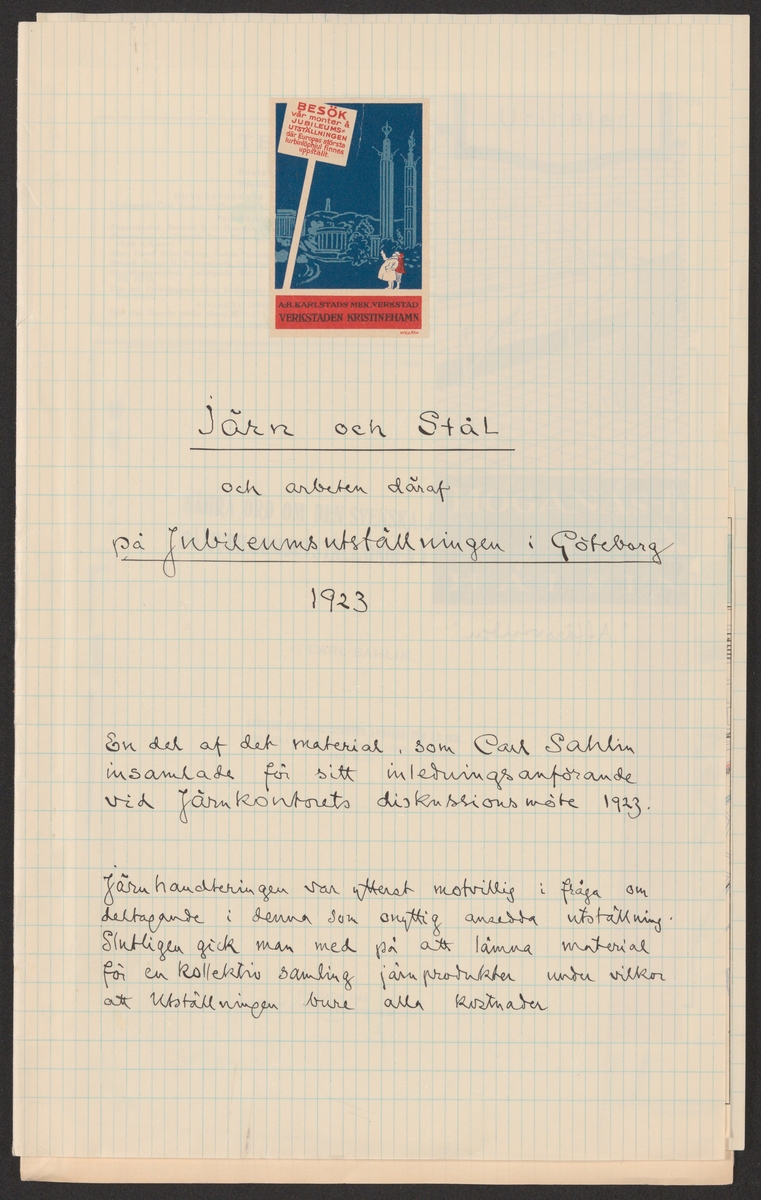 BESÖK
vår monter å
JUBILEUMS-
UTSTÄLLNINGEN
där Europas största
turbinlöphjul finnes
uppställt.
A.-B. KARLSTADS MEK. VERKSTAD
VERKSTADEN KRISTINEHAMN
Järn och Stål
och arbeten däraf
på Jubileumsutställningen i Göteborg
1923
En del af det material, som Carl Sahlin
insamlade för sitt inledningsanförande
vid Järnkontorets diskussionsmöte 1923.
Järnhandteringen var ytterst motvillig i fråga om
deltagande i denna som onyttig ansedda utställning.
Slutligen gick man med på att lämna material
för en kollektiv samling järnprodukter under vilkor
att Utställningen bure alla kostnader